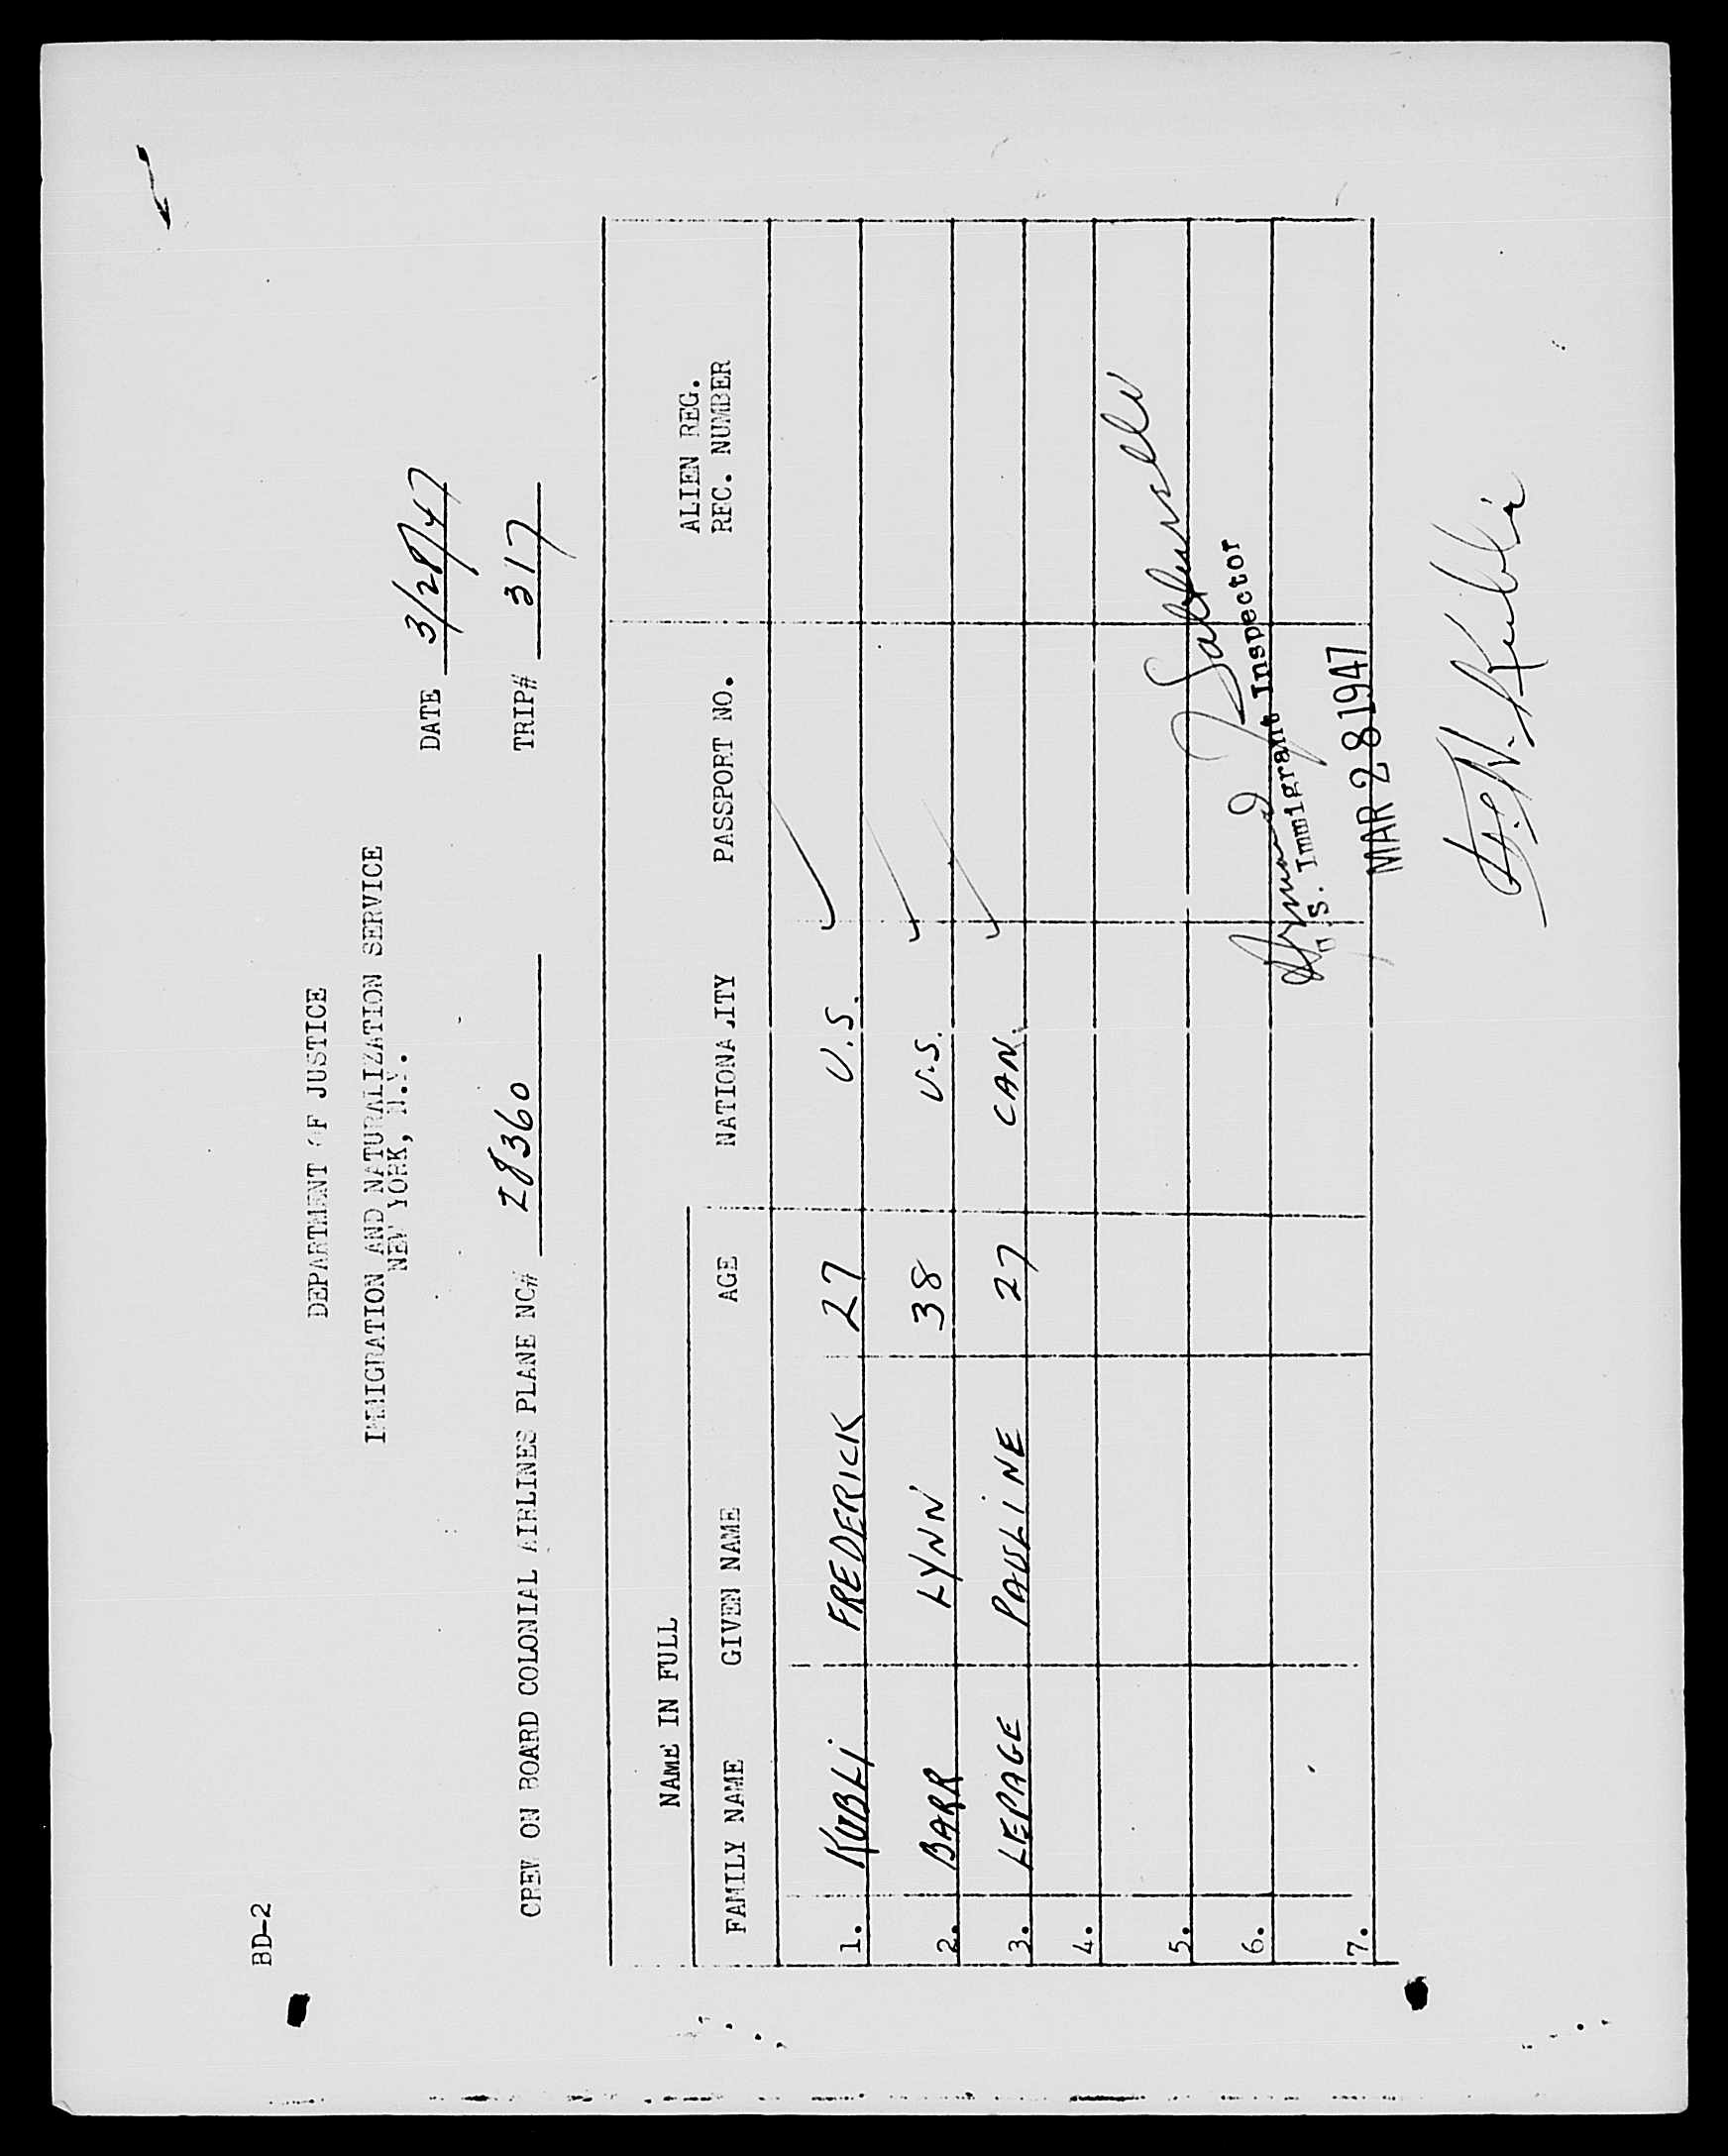 BD-2
DEPARTMENT OF JUSTICE
IMMIGRATION AND NATURALIZATION SERVICE
NEW YORK, N.Y.
DATE 3/28/47
CREW ON BOARD COLONIAL AIRLINES PLANE NC# 28360 TRIP# 317
NAME IN FULL
ALIEN REG.
FAMILY NAME GIVEN NAME AGE NATIONALITY PASSPORT NO. REC. NUMBER
1. KUBLI FREDERICK 27 U.S.
2. BARR LYNN 38 U.S.
3. LEPAGE PAULINE 27 CAN.
4.
5.
6.
U.S. Immigrant Inspector
7.
MAR 28 1947
Kubli